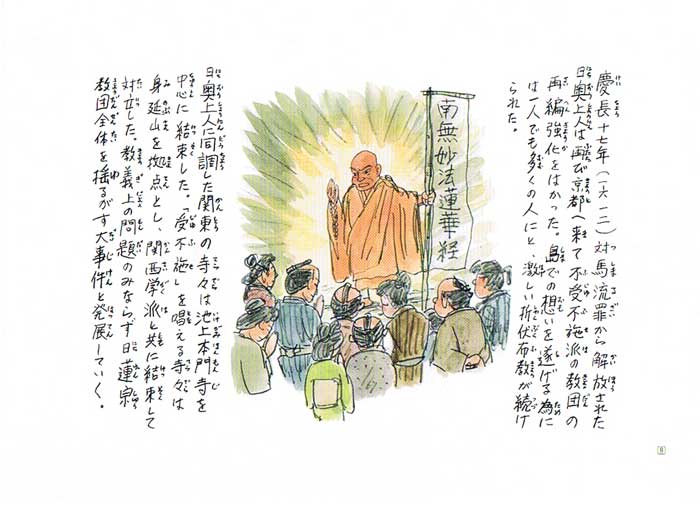 慶長十七年(一六一二)対馬流罪から解放された
日奥上人は再び京都へ来て不受不施派の教団の
再編強化をはかった。島での想いを遂げる為に
は一人でも多くの人にと、激しい折伏布教が続け
られた。
南無妙法蓮華経
日奥上人に同調した関東の寺々は池上本門寺を
中心に結束した。「受不施」を唱える寺々は
身延山を拠点とし、関西学派と共に結束して
対立した。教義上の問題のみならず日蓮宗
教団全体を揺るがす大事件と発展していく。